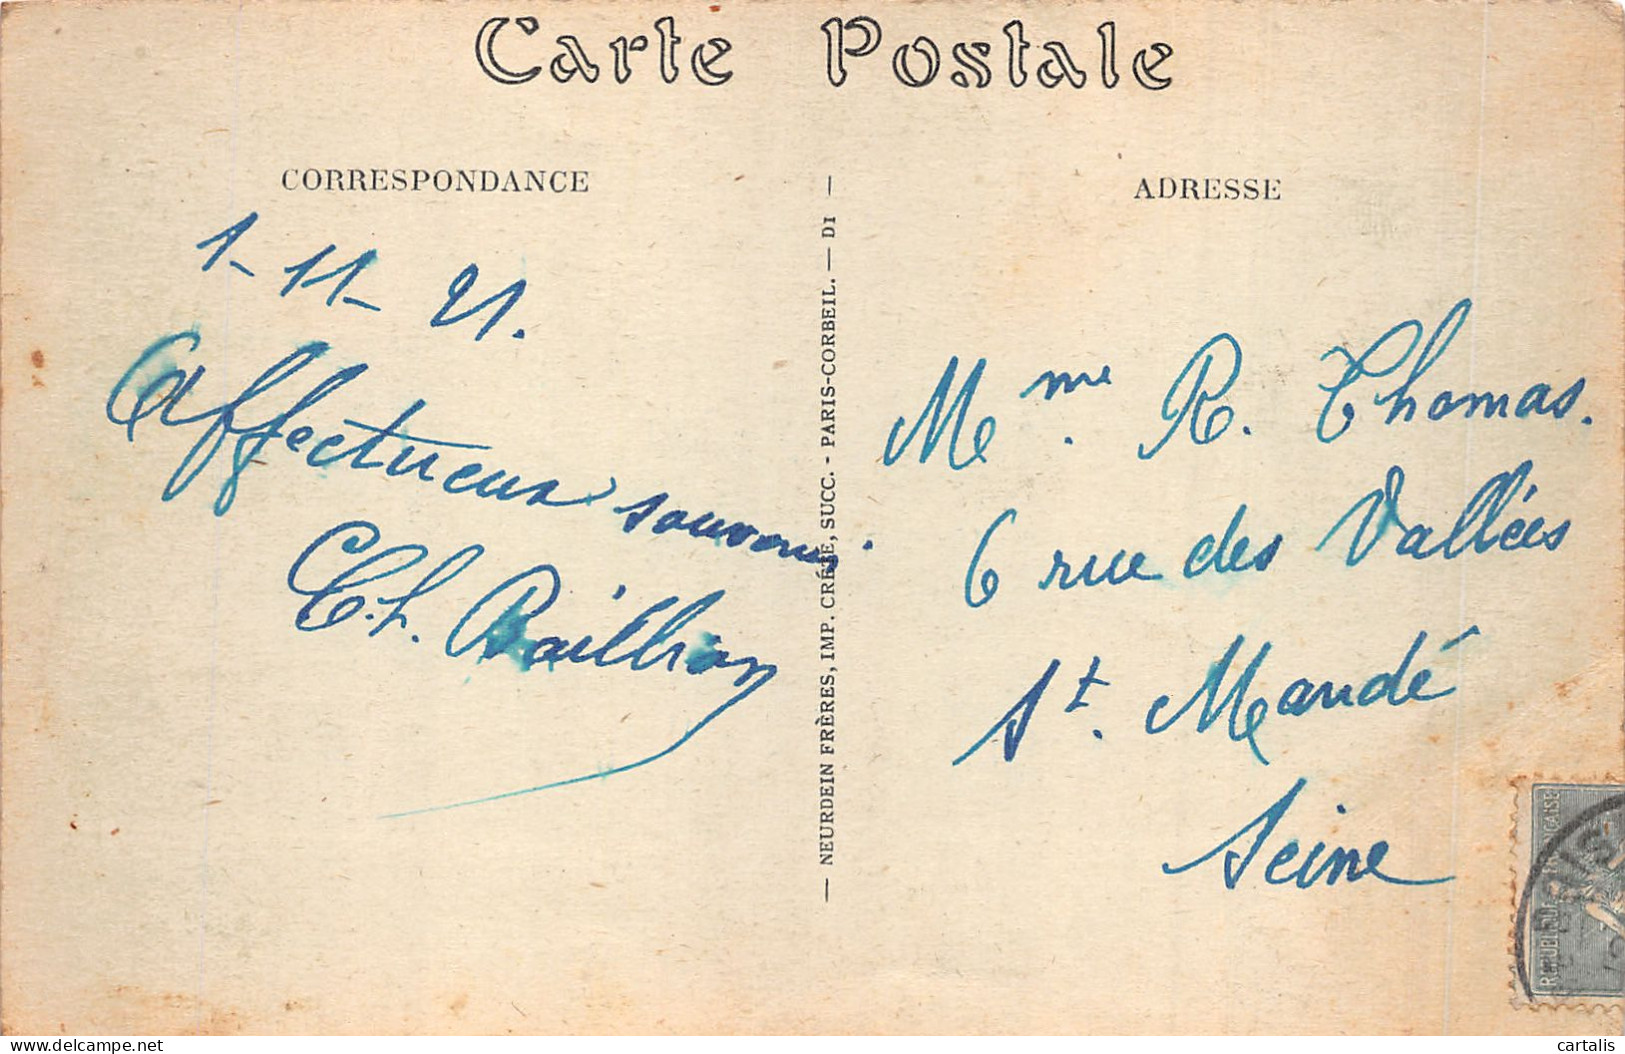 Carte Postale
CORRESPONDANCE
1-11-21.
Affectueux souvenir.
Ch. Baillion
— NEURDEIN FRÈRES, IMP. CRÉTÉ, SUCC. - PARIS-CORBEIL. — DI —
ADRESSE
Mme. R. Thomas.
6 rue des Vallées
St. Mandé
Seine
delcampe.net
cartalis